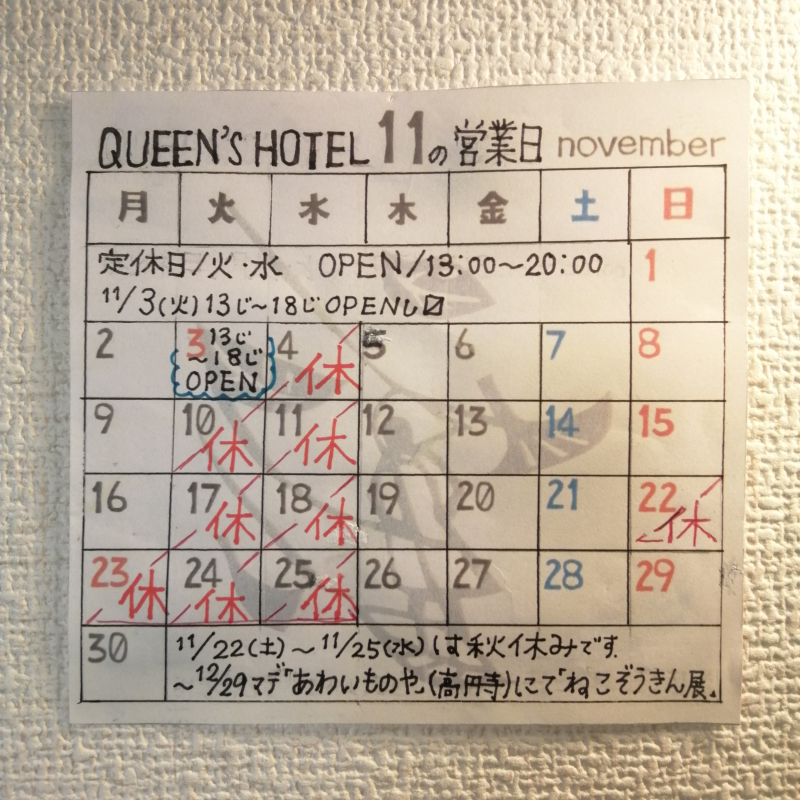 QUEEN'S HOTEL 11の営業日 november
月 火 水 木 金 土 日
定休日/火・水 OPEN/13:00〜20:00 1
11/3(火)13じ〜18じOPENし〼
2 3 13じ〜18じ OPEN 4 休 5 6 7 8
9 10 休 11 休 12 13 14 15
16 17 休 18 休 19 20 21 22 休
23 休 24 休 25 休 26 27 28 29
30 11/22(土)〜11/25(水)は秋休みです.
〜12/29マデ「あわいものや」(高円寺)にて「ねこぞうきん展」